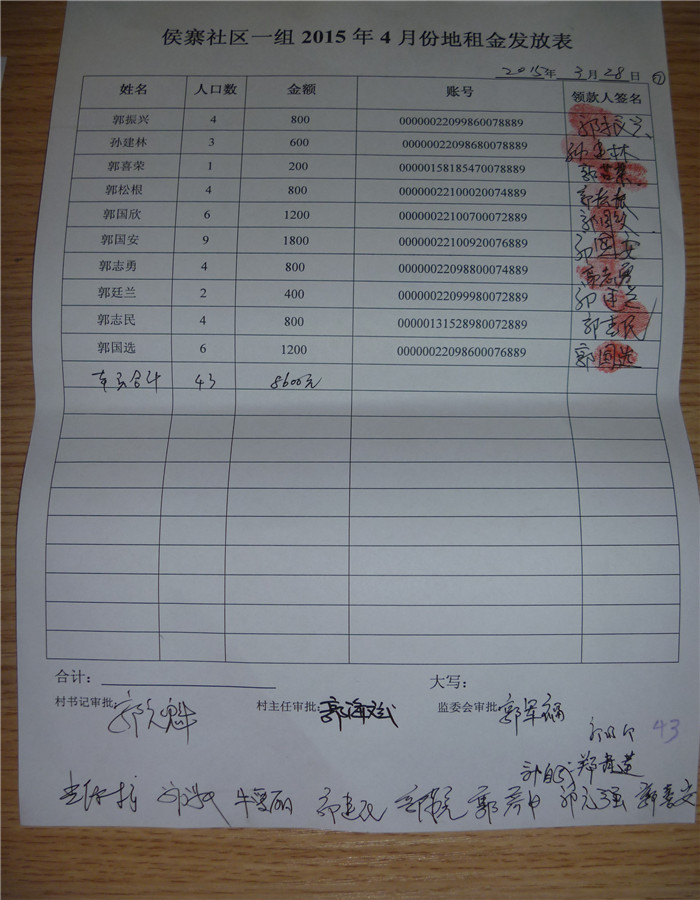 侯寨社区一组 2015 年 4 月份地租金发放表
2015年 3月28日 ⑦
姓名 人口数 金额 账号 领款人签名
郭振兴 4 800 00000022099860078889 郭振兴
孙建林 3 600 00000022098680078889 孙建林
郭喜荣 1 200 00000158185470078889 郭喜荣
郭松根 4 800 00000022100020074889 郭松根
郭国欣 6 1200 00000022100700072889 郭国欣
郭国安 9 1800 00000022100920076889 郭国安
郭志勇 4 800 00000022098800074889 郭志勇
郭廷兰 2 400 00000022099980072889 郭廷兰
郭志民 4 800 00000131528980072889 郭志民
郭国选 6 1200 00000022098600076889 郭国选
本页合计 43 8600元
合计： 大写：
村书记审批: 村主任审批: 郭海斌 监委会审批: 郭军福
43
牛爱丽